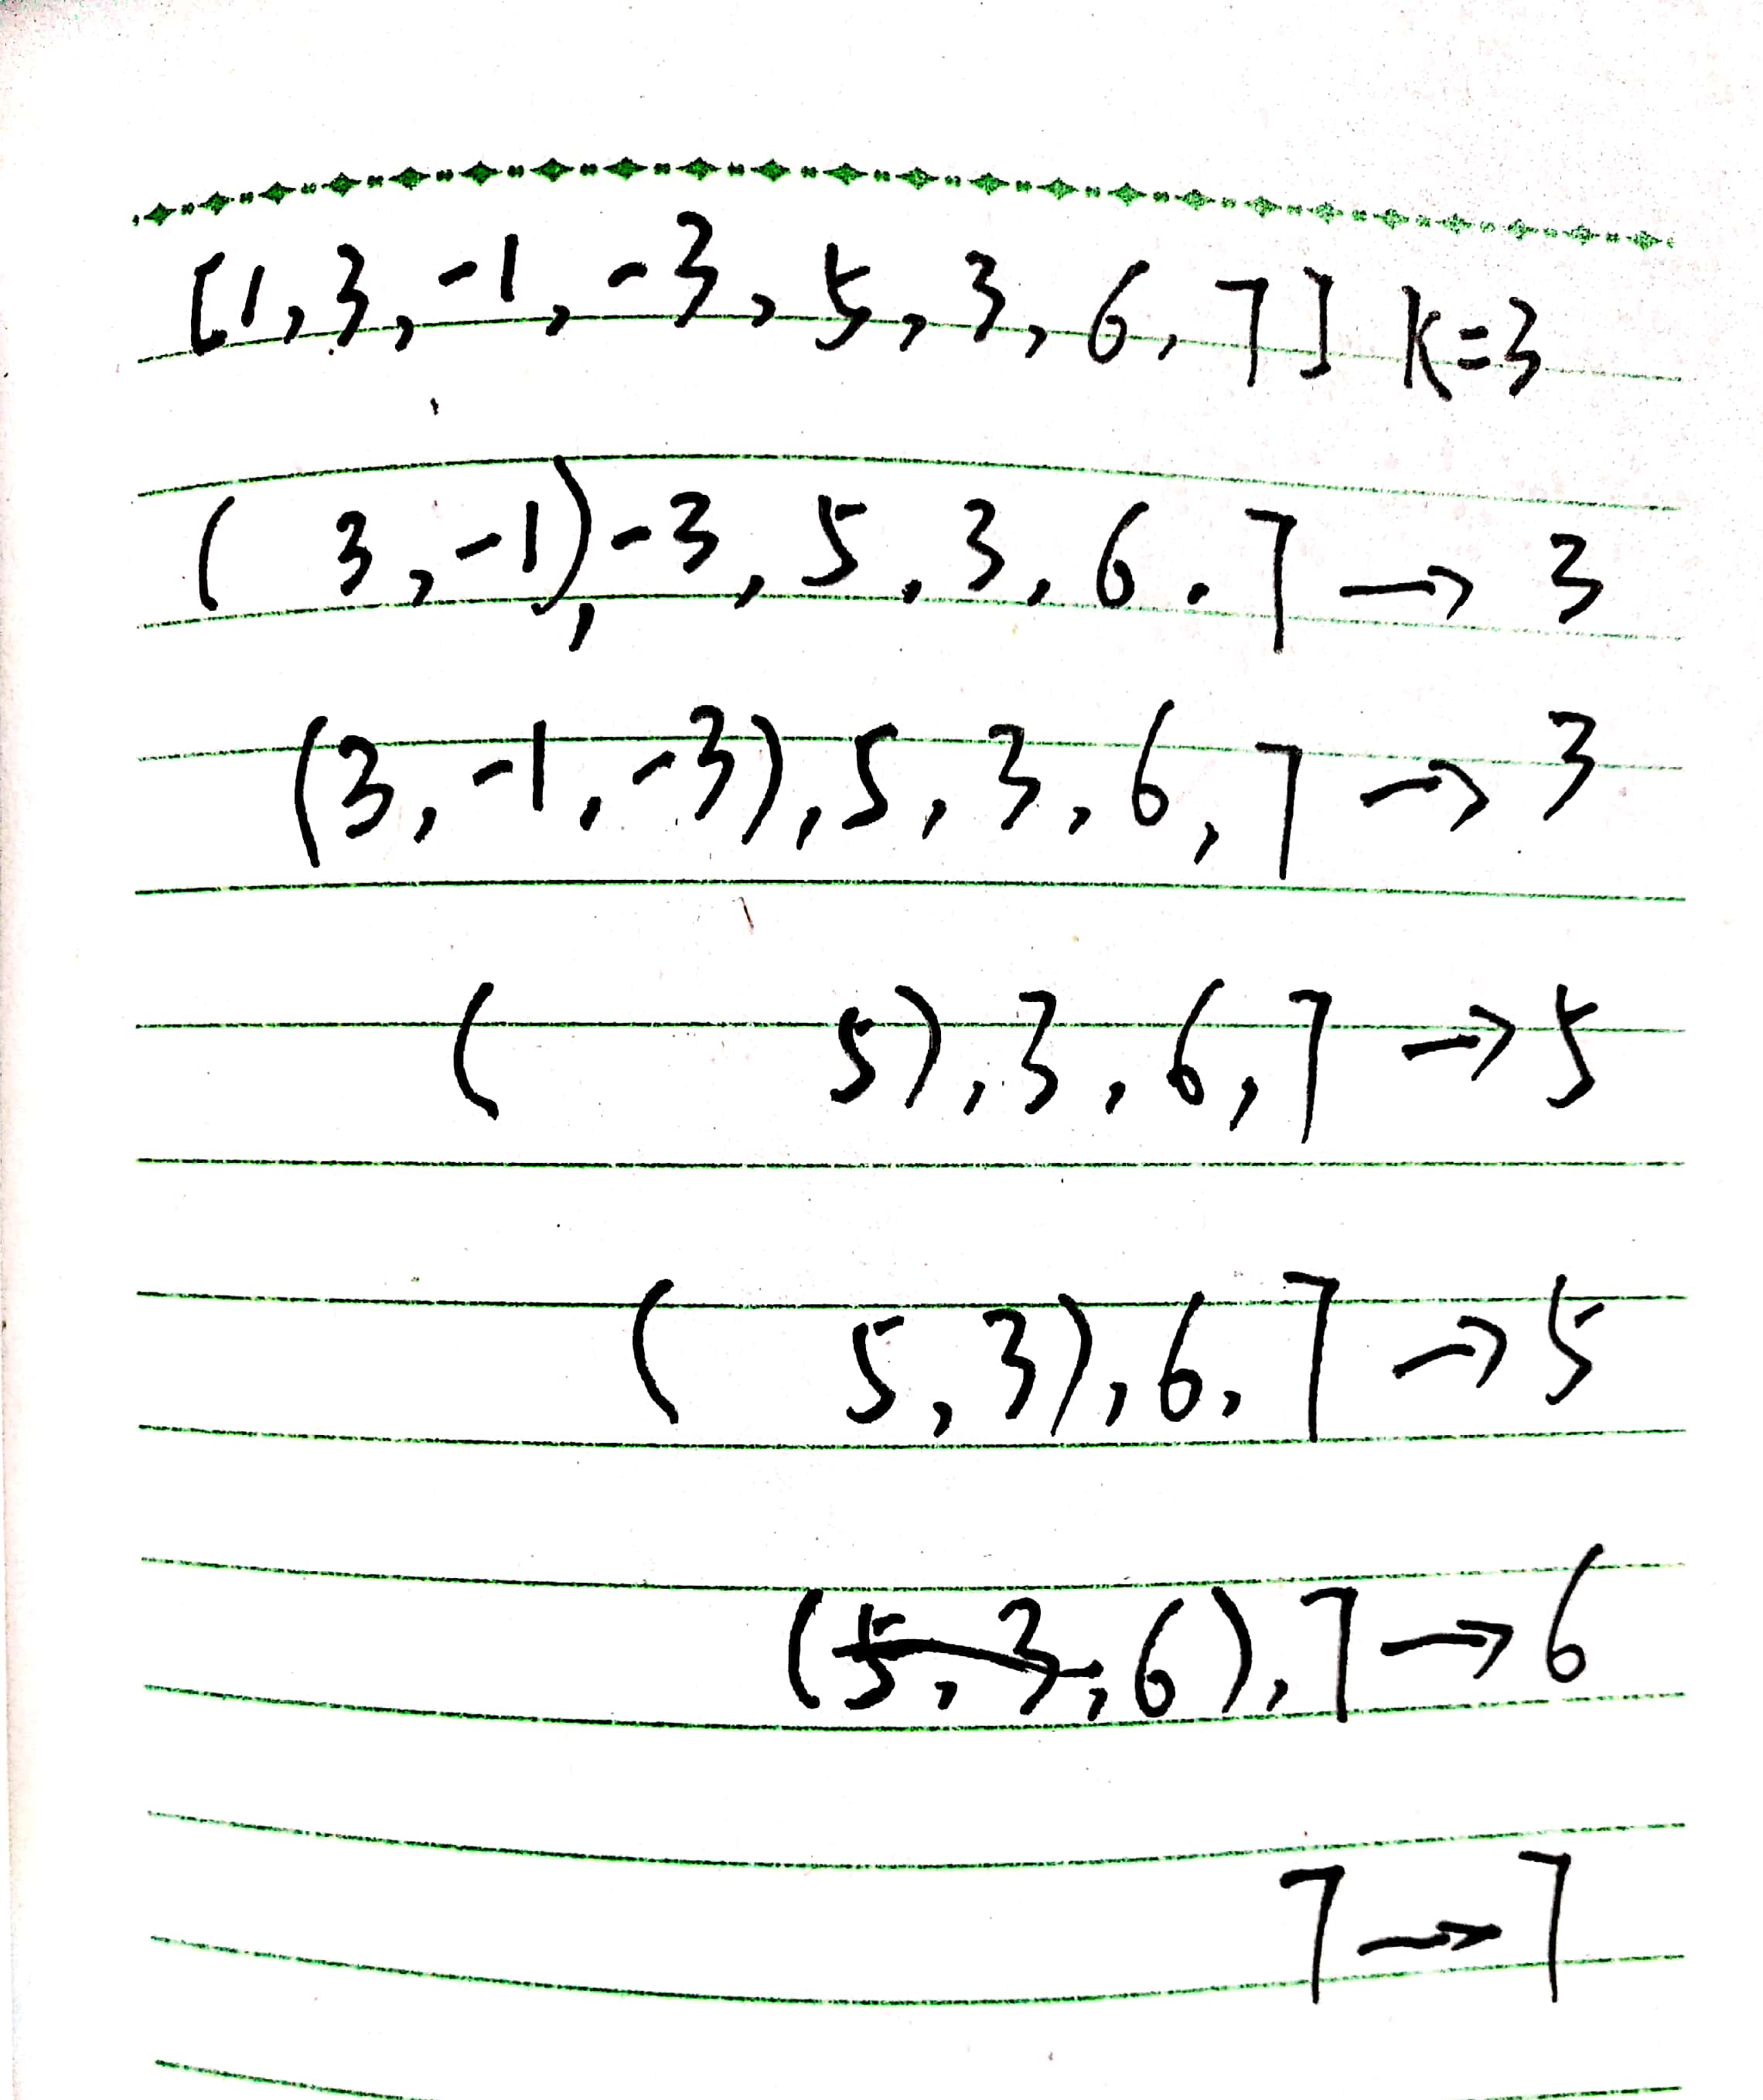 [1,3,-1,-3,5,3,6,7] k=3
( 3,-1),-3,5,3,6.7→3
(3,-1,-3),5,3,6,7→3
( 5),3,6,7→5
( 5,3),6,7→5
(5,3,6),7→6
7→7